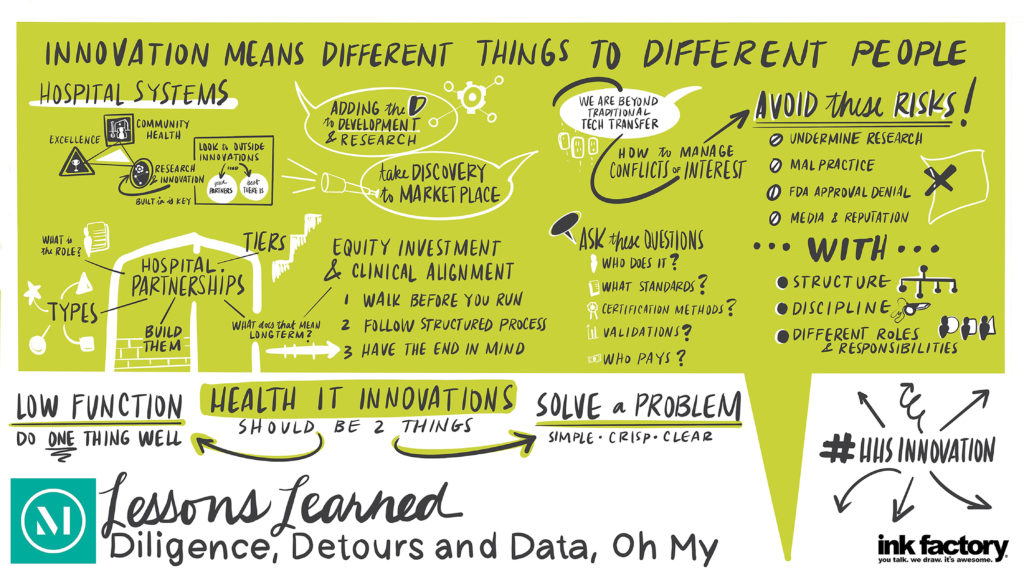 INNOVATION MEANS DIFFERENT THINGS TO DIFFERENT PEOPLE
HOSPITAL SYSTEMS
EXCELLENCE
COMMUNITY
HEALTH
RESEARCH
& INNOVATION
BUILT IN is KEY
LOOK to OUTSIDE
INNOVATIONS
FIND
good
PARTNERS
best
THERE IS
ADDING the D
to DEVELOPMENT
& RESEARCH
take DISCOVERY
to MARKET PLACE
WE ARE BEYOND
TRADITIONAL
TECH TRANSFER
HOW to MANAGE
CONFLICTS of INTEREST
AVOID these RISKS!
UNDERMINE RESEARCH
MAL PRACTICE
FDA APPROVAL DENIAL
MEDIA & REPUTATION
... WITH ...
STRUCTURE
DISCIPLINE
DIFFERENT ROLES
& RESPONSIBILITIES
WHAT is
the ROLE?
TIERS
HOSPITAL
PARTNERSHIPS
TYPES
BUILD
THEM
WHAT does that MEAN
LONGTERM?
EQUITY INVESTMENT
& CLINICAL ALIGNMENT
1 WALK BEFORE YOU RUN
2 FOLLOW STRUCTURED PROCESS
3 HAVE THE END IN MIND
ASK these QUESTIONS
WHO DOES IT?
WHAT STANDARDS?
CERTIFICATION METHODS?
VALIDATIONS?
WHO PAYS?
LOW FUNCTION
DO ONE THING WELL
HEALTH IT INNOVATIONS
SHOULD BE 2 THINGS
SOLVE a PROBLEM
SIMPLE • CRISP • CLEAR
#HHS INNOVATION
M
Lessons Learned
Diligence, Detours and Data, Oh My
ink factory
you talk. we draw. it's awesome.